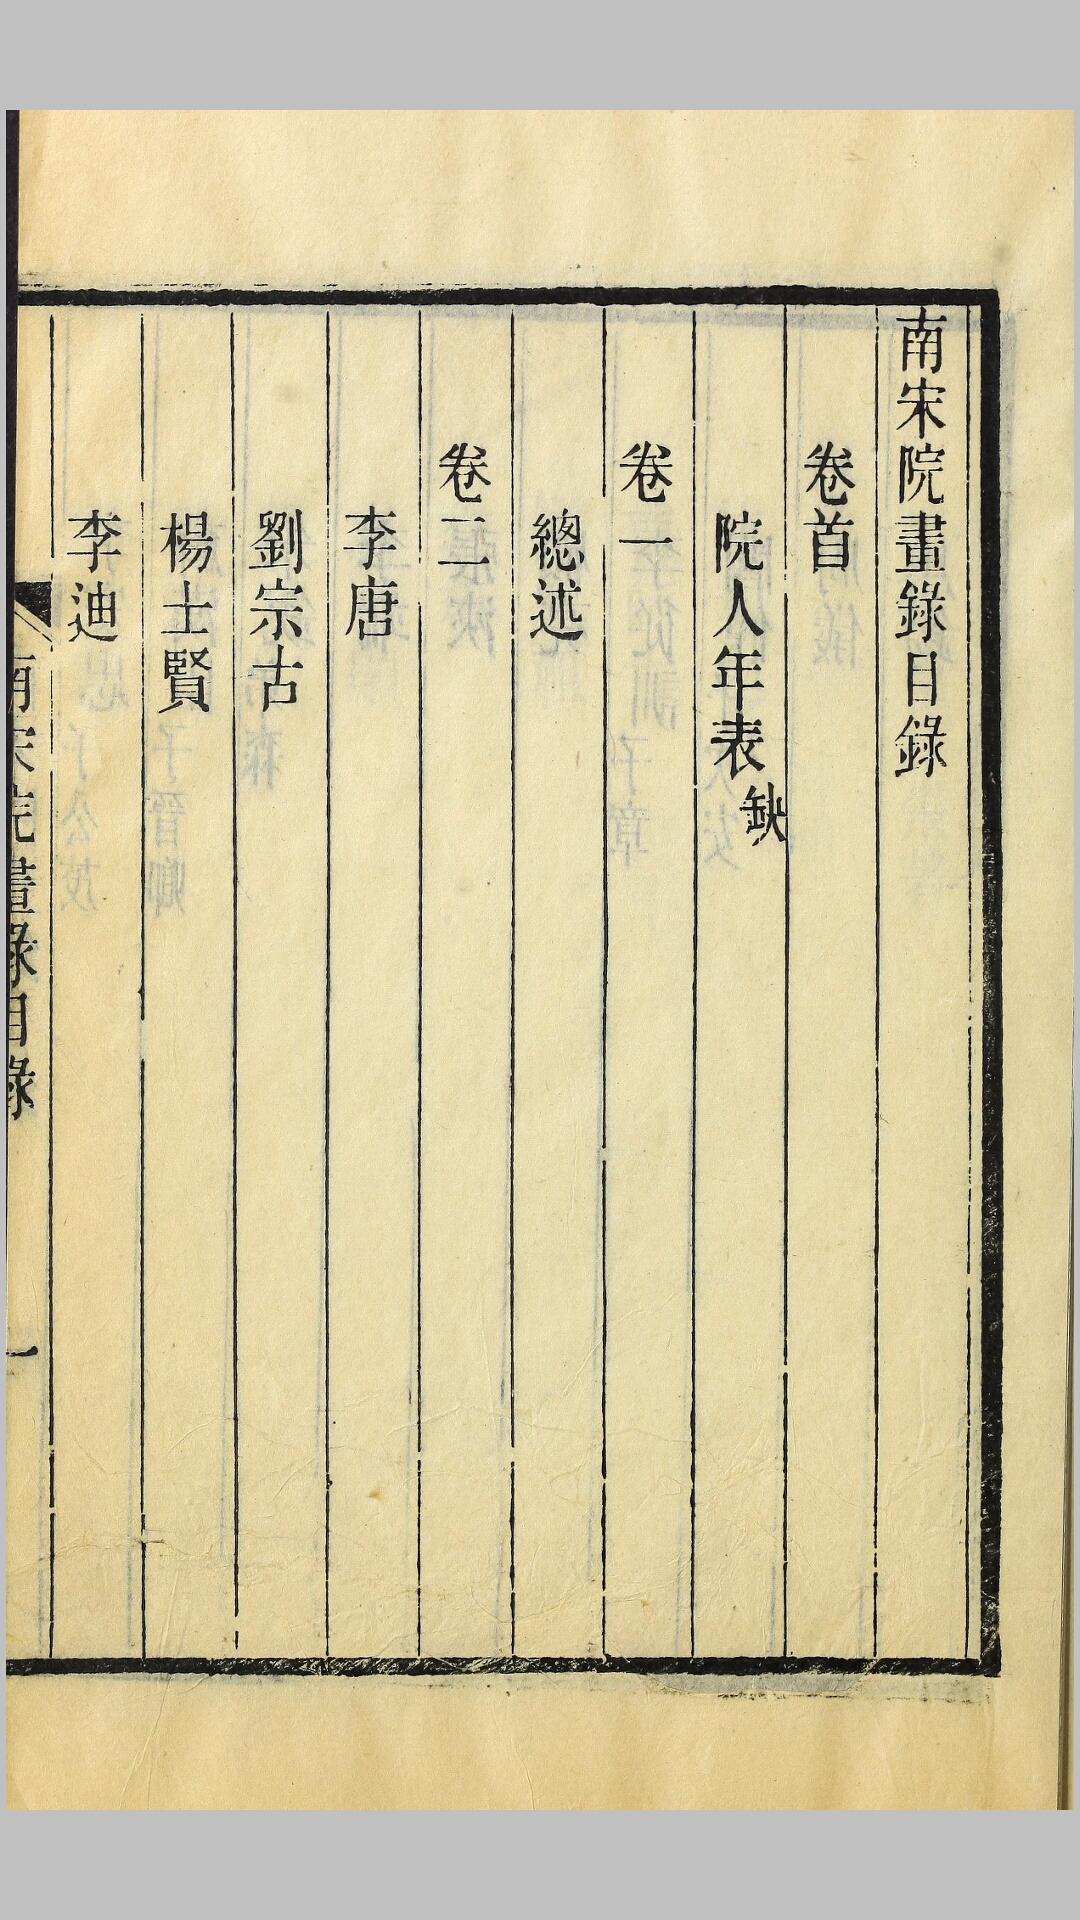 南宋院畫錄目錄
卷首
院人年表缺
卷一
總述
卷二
李唐
劉宗古
楊士賢
李迪
南宋院畫錄目錄
一